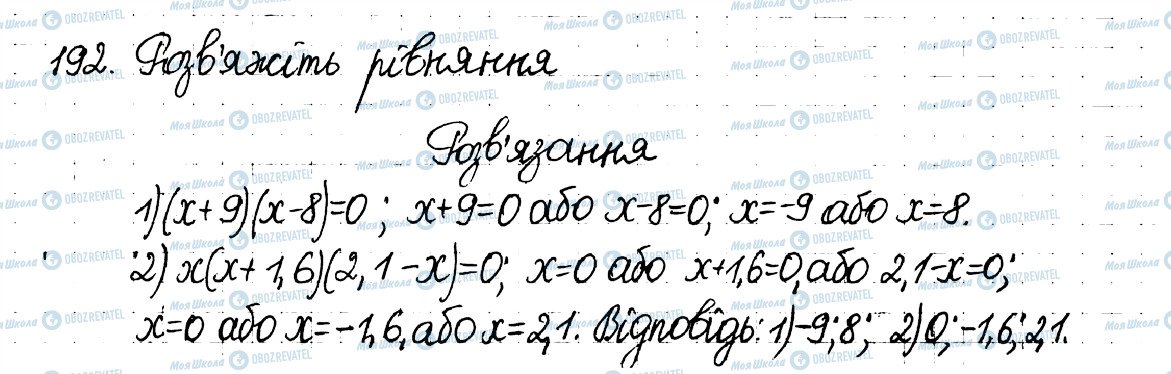 192. Розв'яжіть рівняння
Розв'язання
1) (x+9)(x-8)=0; x+9=0 або x-8=0; x=-9 або x=8.
2) x(x+1,6)(2,1-x)=0; x=0 або x+1,6=0, або 2,1-x=0;
x=0 або x=-1,6, або x=2,1. Відповідь: 1) -9; 8; 2) 0; -1,6; 2,1.